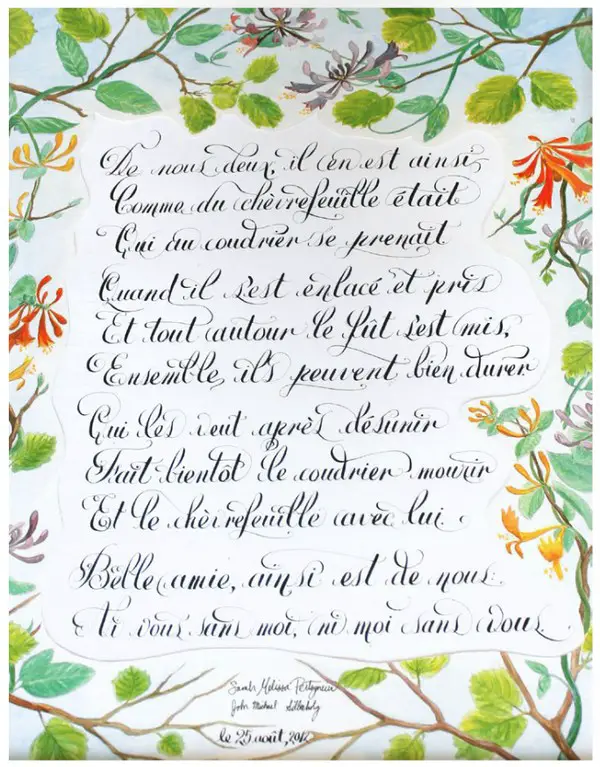 De nous deux, il en est ainsi,
Comme du chèvrefeuille était
Qui au coudrier se prenait
Quand il s'est enlacé et pris
Et tout autour le fût s'est mis,
Ensemble, ils peuvent bien durer
Qui les veut après désunir
Fait bientôt le coudrier mourir
Et le chèvrefeuille avec lui.
Belle amie, ainsi est de nous:
Ni vous sans moi, ni moi sans vous.
Sarah Melissa
John Michael
le 25 août, 2012